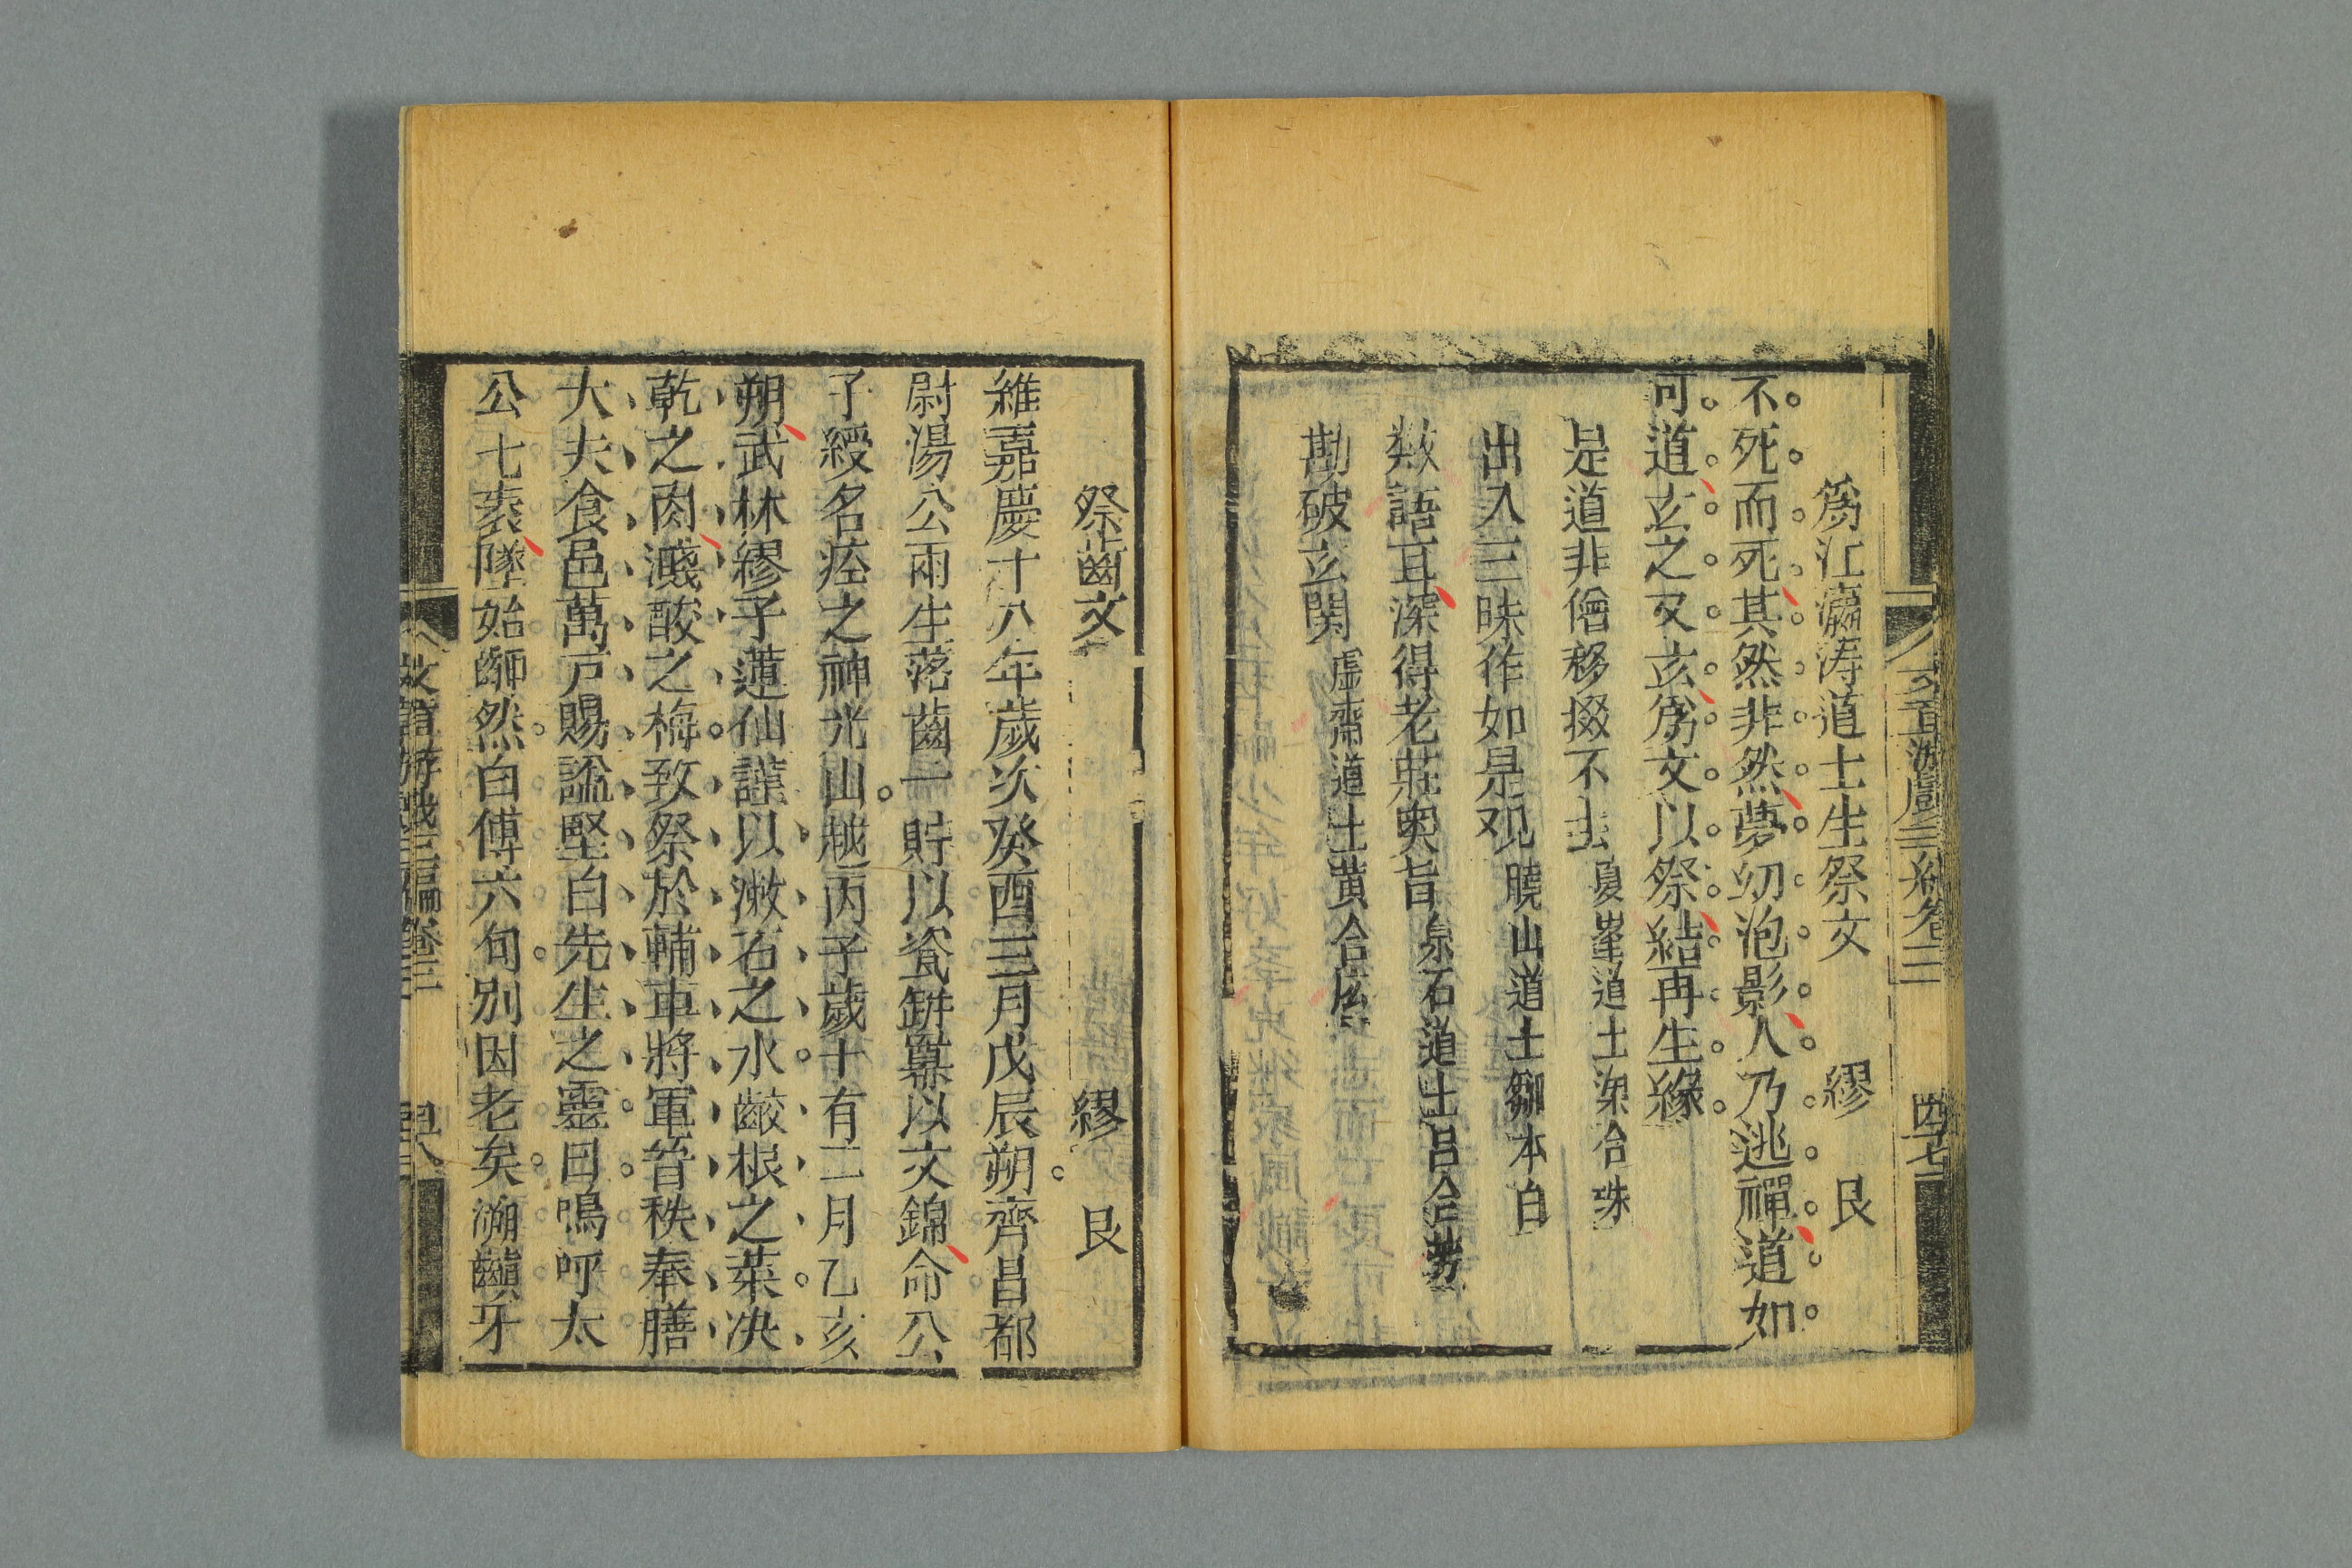 文章游戲三編卷二
四十七
爲江瀛涛道士生祭文　繆　艮
不死而死其然非然夢幻泡影人乃逃禪道如
可道玄之又玄爲文以祭結再生緣
是道非僧移掇不去夏峯道士梁合珠
出入三昧作如是观曉山道士鄒本白
数語耳深得老莊奥旨泉石道士呂合芳
勘破玄関虛齋道士黄合
祭齒文　繆　艮
維嘉慶十八年歲次癸酉三月戊辰朔齊昌都
尉湯公雨生落齒一貯以瓷缾冪以文錦命公
子綬名瘞之神光山越丙子歲十有二月乙亥
朔武林繆子蓮仙謹以潄石之水齩根之菜决
乾之肉濺酸之梅致祭於輔車將軍晉秩奉膳
大夫食邑萬戸賜謚堅白先生之靈曰嗚呼太
公七袠墜始齠然白傅六旬别因老矣溯齻牙
文章游戲三編卷二
四十八